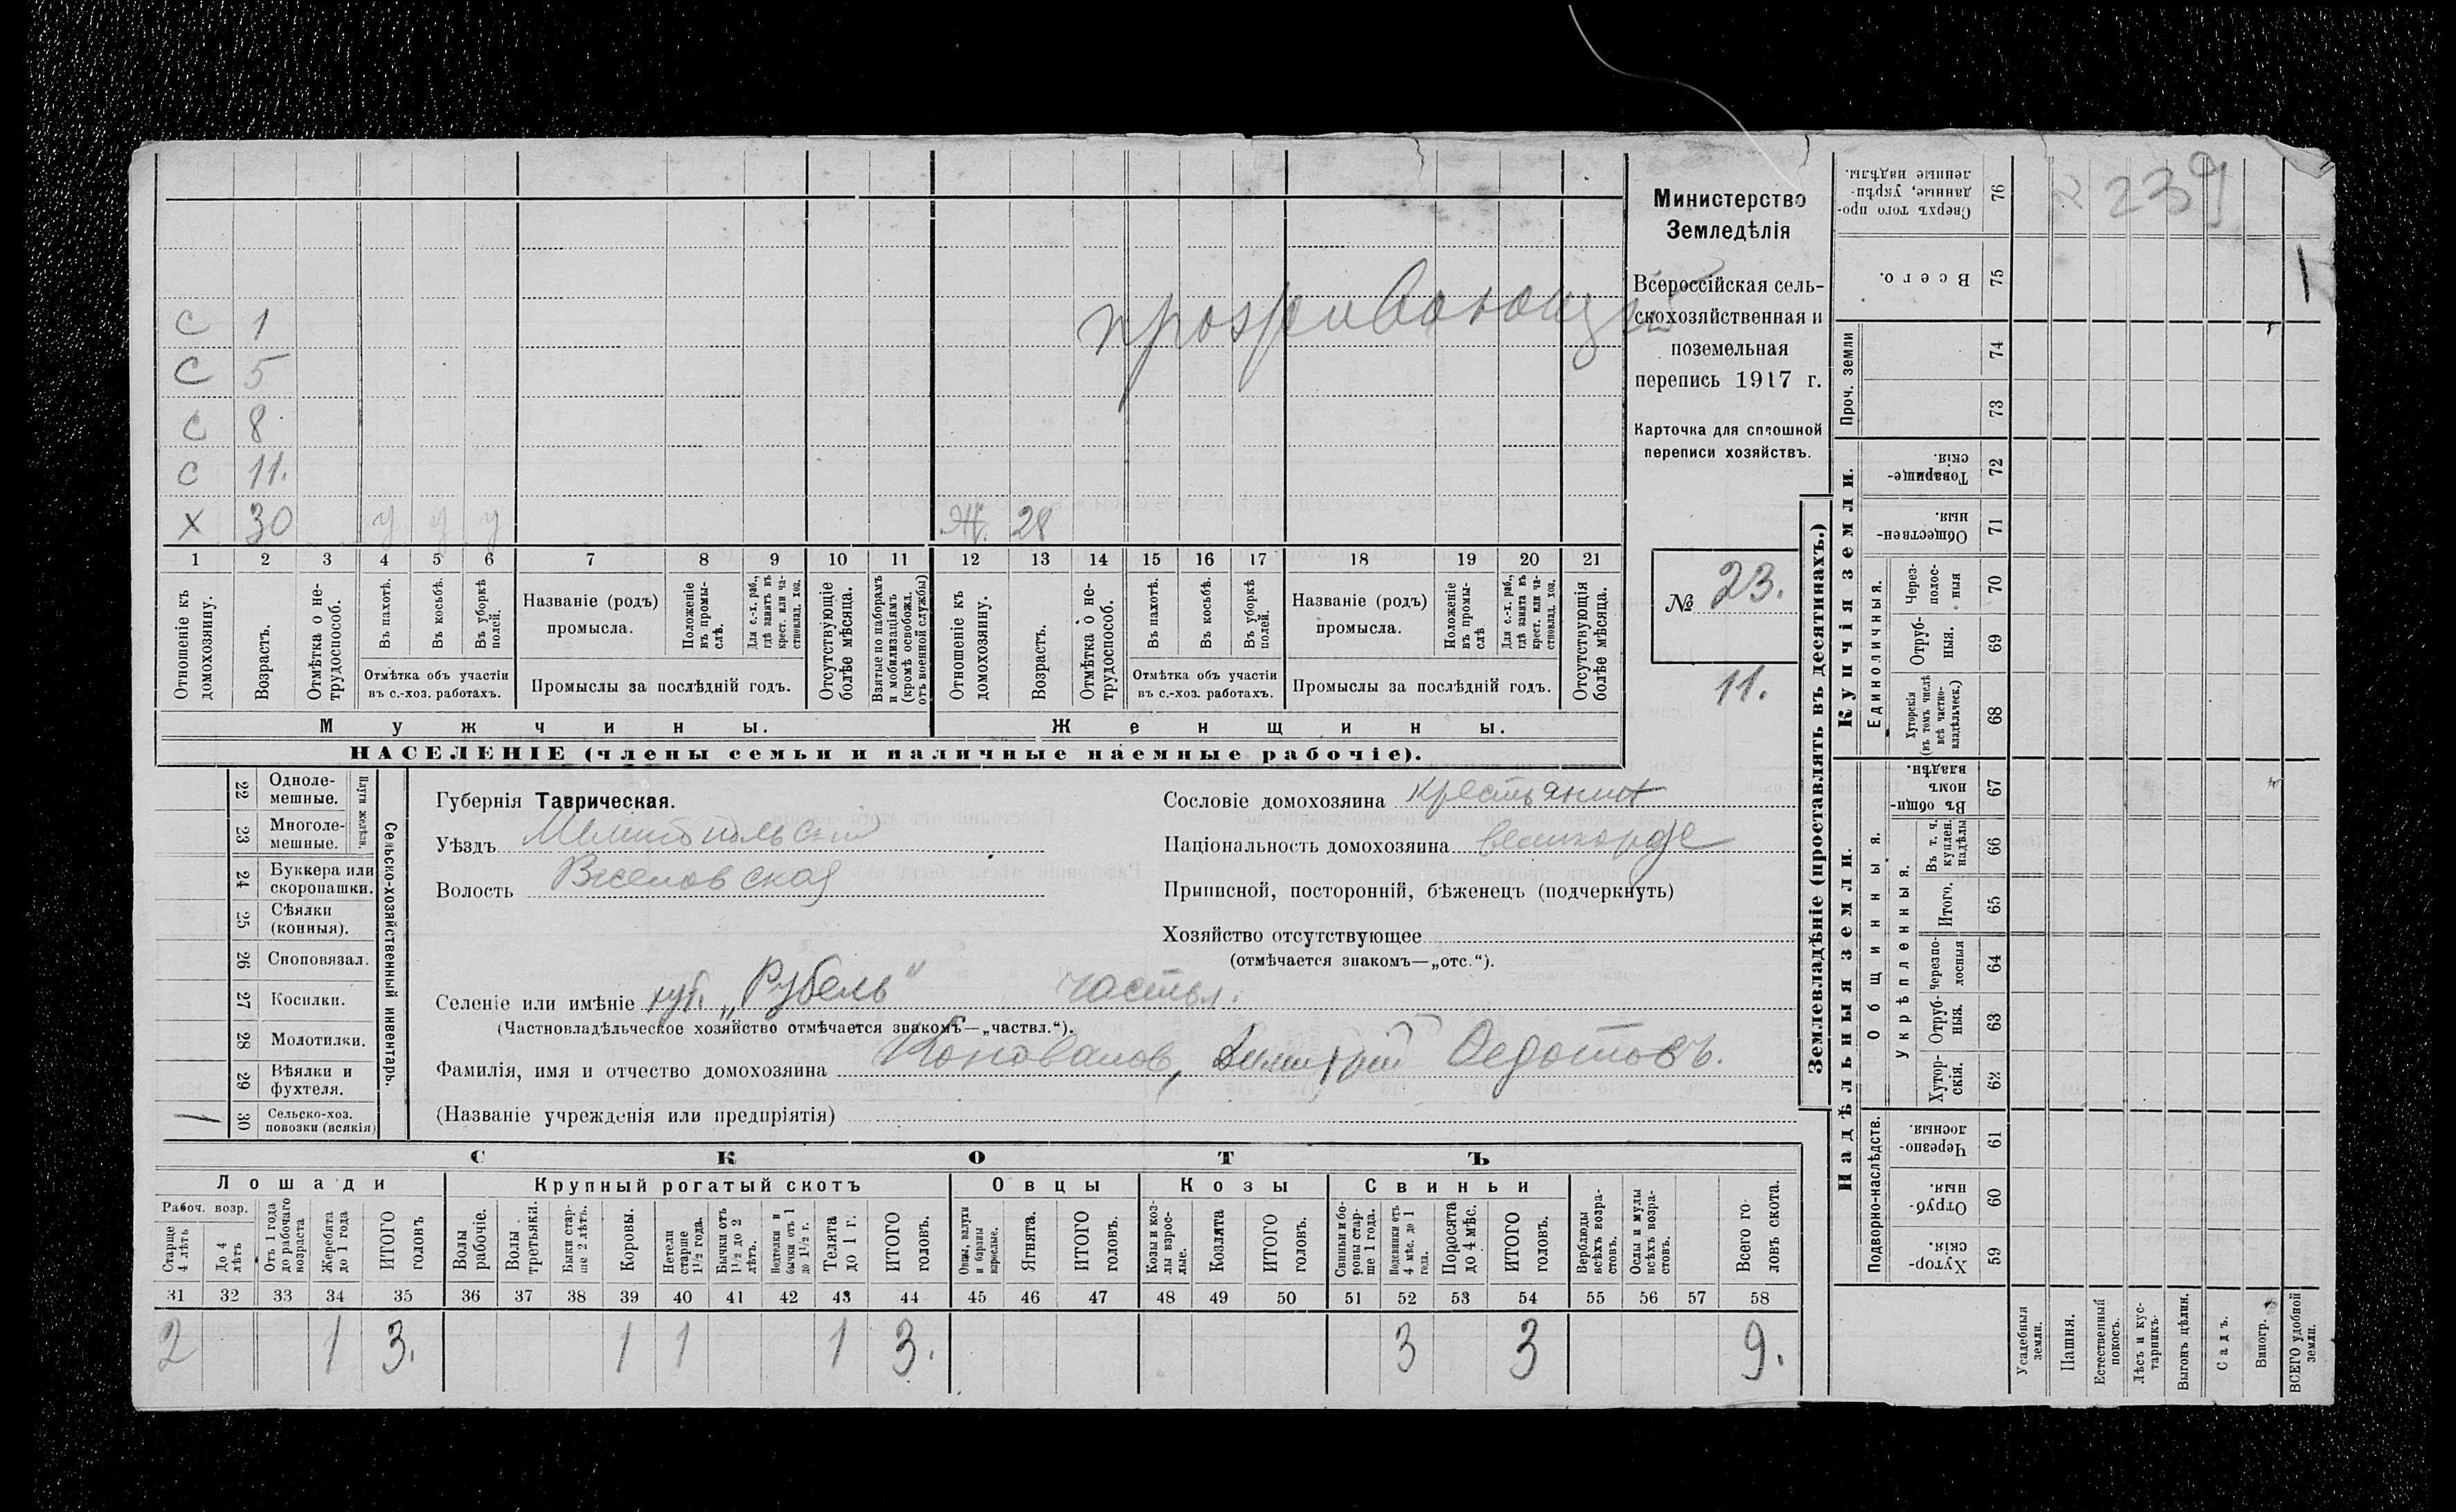 проживающій
С 1
С 5
С 8
С 11.
Х 30 у у у Ж. 28
1 2 3 4 5 6 7 8 9 10 11 12 13 14 15 16 17 18 19 20 21
Отношеніе къ домохозяину.
Возрастъ.
Отмѣтка о нетрудоспособ.
Въ пахотѣ.
Въ косьбѣ.
Въ уборкѣ полей.
Отмѣтка объ участіи
въ с.-хоз. работахъ.
Названіе (родъ)
промысла.
Положеніе въ промыслѣ.
Для с.-х. раб., гдѣ занятъ въ крест. или частновлад. хоз.
Промыслы за послѣдній годъ.
Отсутствующіе болѣе мѣсяца.
Взятые по наборамъ и мобилизаціямъ (кромѣ освобожд. отъ военной службы)
Отношеніе къ домохозяину.
Возрастъ.
Отмѣтка о нетрудоспособ.
Въ пахотѣ.
Въ косьбѣ.
Въ уборкѣ полей.
Отмѣтка объ участіи
въ с.-хоз. работахъ.
Названіе (родъ)
промысла.
Положеніе въ промыслѣ
Для с.-х. раб., гдѣ занята въ крест. или частновлад. хоз.
Промыслы за послѣдній годъ.
Отсутствующія болѣе мѣсяца.
Мужчины. Женщины.
НАСЕЛЕНІЕ (члены семьи и наличные наемные рабочіе).
Министерство
Земледѣлія
Всероссійская сель-
скохозяйственная и
поземельная
перепись 1917 г.
Карточка для сплошной
переписи хозяйствъ.
№ 23.
11.
22 Одноле-
мешные.
23 Многоле-
мешные.
Плуги желѣзн.
24 Буккера или
скоропашки.
25 Сѣялки
(конныя).
26 Сноповязал.
27 Косилки.
28 Молотилки.
29 Вѣялки и
фухтеля.
1 30 Сельско-хоз.
повозки (всякія)
Сельско-хозяйственный инвентарь.
Губернія Таврическая.
Уѣздъ Мелитопольскій
Волость Веселовская
Сословіе домохозяина крестьянин
Національность домохозяина великорос
Приписной, посторонній, бѣженецъ (подчеркнуть)
Хозяйство отсутствующее
(отмѣчается знакомъ—„отс.“).
Селеніе или имѣніе хут. „Рубель“ частвл.
(Частновладѣльческое хозяйство отмѣчается знакомъ—„частвл.“).
Фамилія, имя и отчество домохозяина Коновалов, Димитрій Федотовъ.
(Названіе учрежденія или предпріятія)
СКОТЪ
Лошади Крупный рогатый скотъ Овцы Козы Свиньи
Рабоч. возр.
Старше 4 лѣтъ
До 4 лѣтъ
Отъ 1 года до рабочаго возраста
Жеребята до 1 года
ИТОГО головъ
Волы рабочіе.
Волы третьяки.
Быки старше 2 лѣтъ.
Коровы.
Нетели старше 1½ года.
Бычки отъ 1½ до 2 лѣтъ.
Подтелки и бычки отъ 1 до 1½ г.
Телята до 1 г.
ИТОГО головъ.
Овцы, валухи и бараны взрослые.
Ягнята.
ИТОГО головъ.
Козы и козлы взрослые.
Козлята
ИТОГО головъ.
Свиньи и боровы старше 1 года.
Подсвинки отъ 4 мѣс. до 1 года.
Поросята до 4 мѣс.
ИТОГО головъ.
Верблюды всѣхъ возрастовъ.
Ослы и мулы всѣхъ возрастовъ.
Всего головъ скота.
31 32 33 34 35 36 37 38 39 40 41 42 43 44 45 46 47 48 49 50 51 52 53 54 55 56 57 58
2 1 3. 1 1 1 3. 3 3 9.
Землевладѣніе (проставлять въ десятинахъ.)
239
1
Сверхъ того проданные, укрѣпленные надѣлы. 76
Всего. 75
Проч. земли
74
73
Купчія земли.
Товарищескія. 72
Общественныя. 71
Единоличныя.
Черезполосныя 70
Отрубныя. 69
Хуторскія (въ томъ числѣ всѣ частновладѣльческ.) 68
Надѣльныя земли.
Общинныя.
Въ общинномъ владѣн. 67
Укрѣпленныя.
Въ т. ч. куплен. надѣлы 66
Итого. 65
Черезполосныя 64
Отрубныя. 63
Хуторскія. 62
Подворно-наслѣдств.
Черезполосныя. 61
Отрубныя. 60
Хуторскія. 59
Усадебныя земли.
Пашня.
Естественный покосъ.
Лѣсъ и кустарникъ.
Выгонъ цѣлин.
Садъ.
Виногр.
ВСЕГО удобной земли.